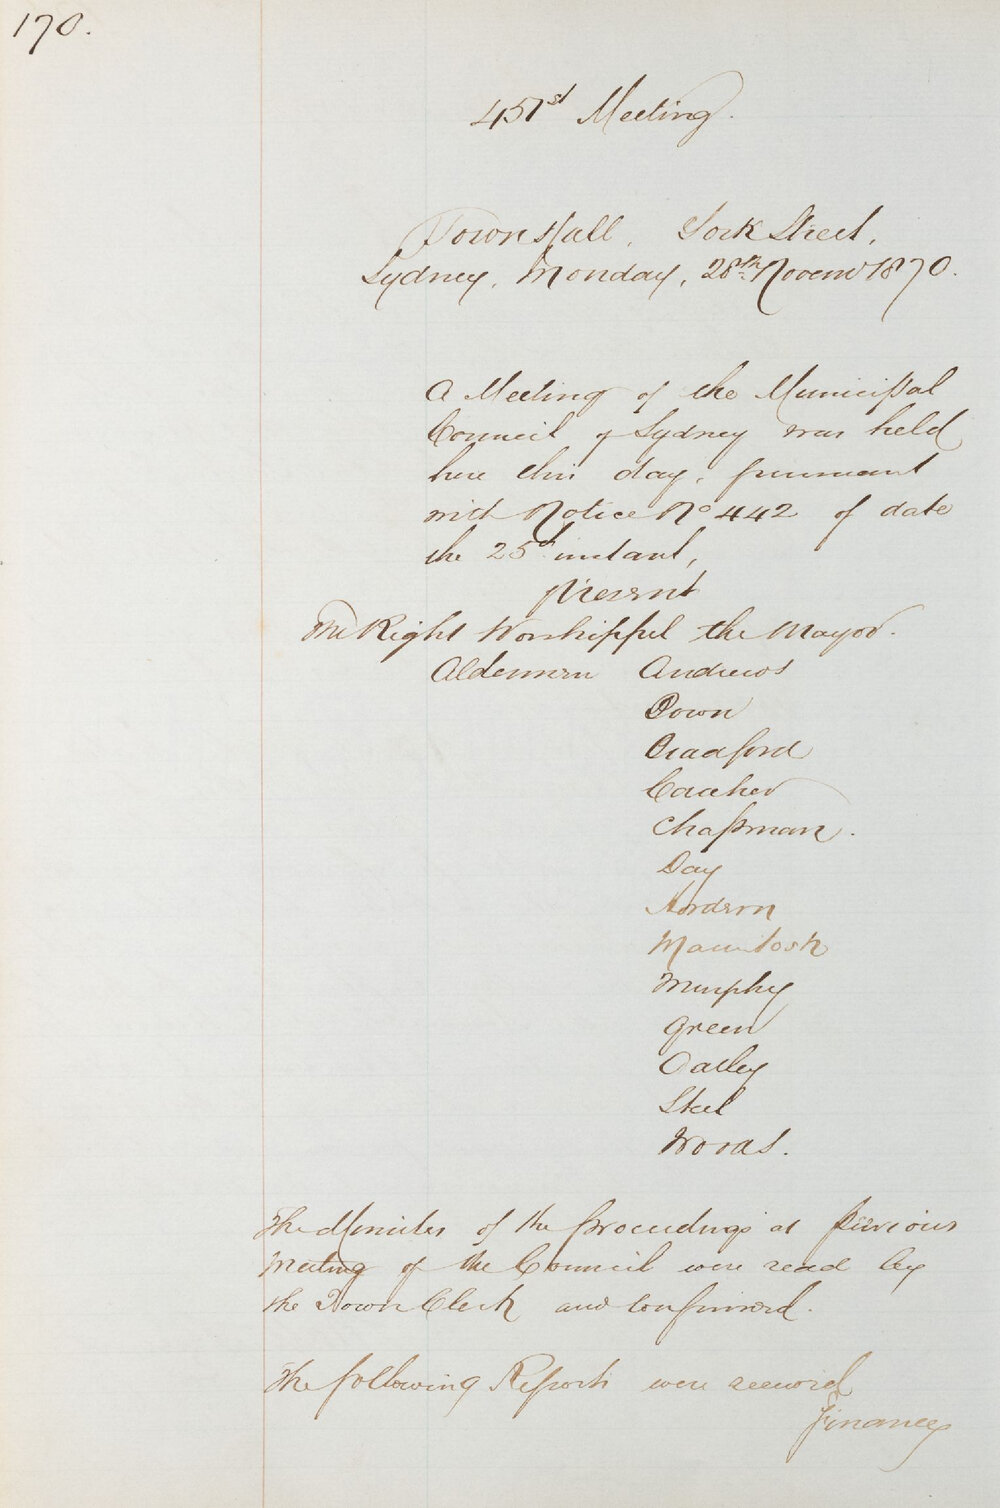 170.
451st Meeting.
Town Hall, York Street,
Sydney, Monday, 28th Novemr 1870.
A Meeting of the Municipal
Council of Sydney was held
here this day, pursuant
with Notice No 442 of date
the 25th instant,
Present
The Right Worshipful the Mayor.
Aldermen Andrews
Down
Bradford
Caraher
Chapman.
Day
Hordern
Macintosh
Murphy
Green
Oatley
Steel
Woods.
The Minutes of the proceedings at previous
Meeting of the Council were read by
the Town Clerk and confirmed.
The following Reports were received
Finance